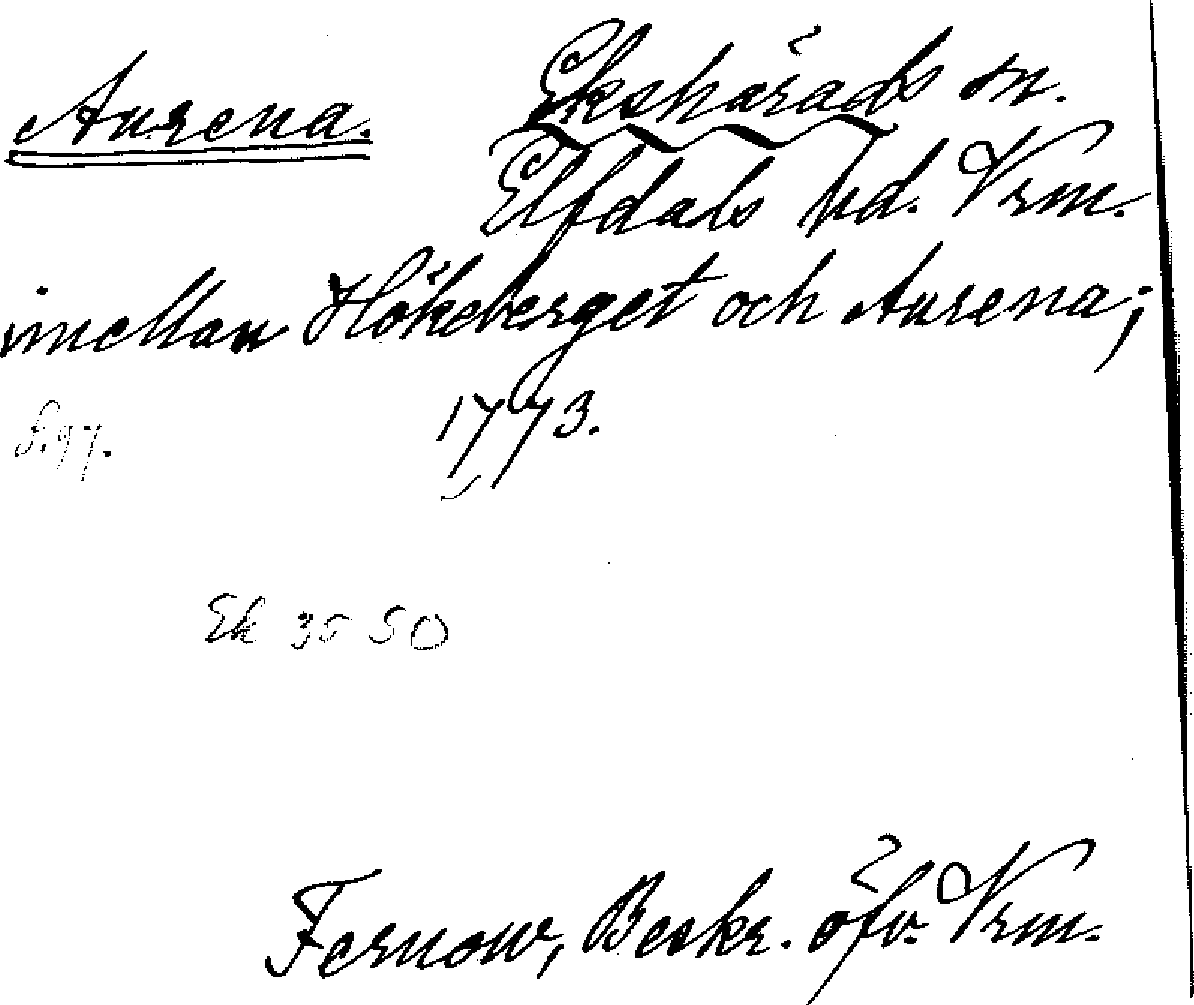 Aurena. Ekshärads sn.
Elfdals hd. Vrm.
imellan Hökeberget och Aurena;
s. 97. 1773.
Ek 35 50
Fernow, Beskr. öfv. Vrm.